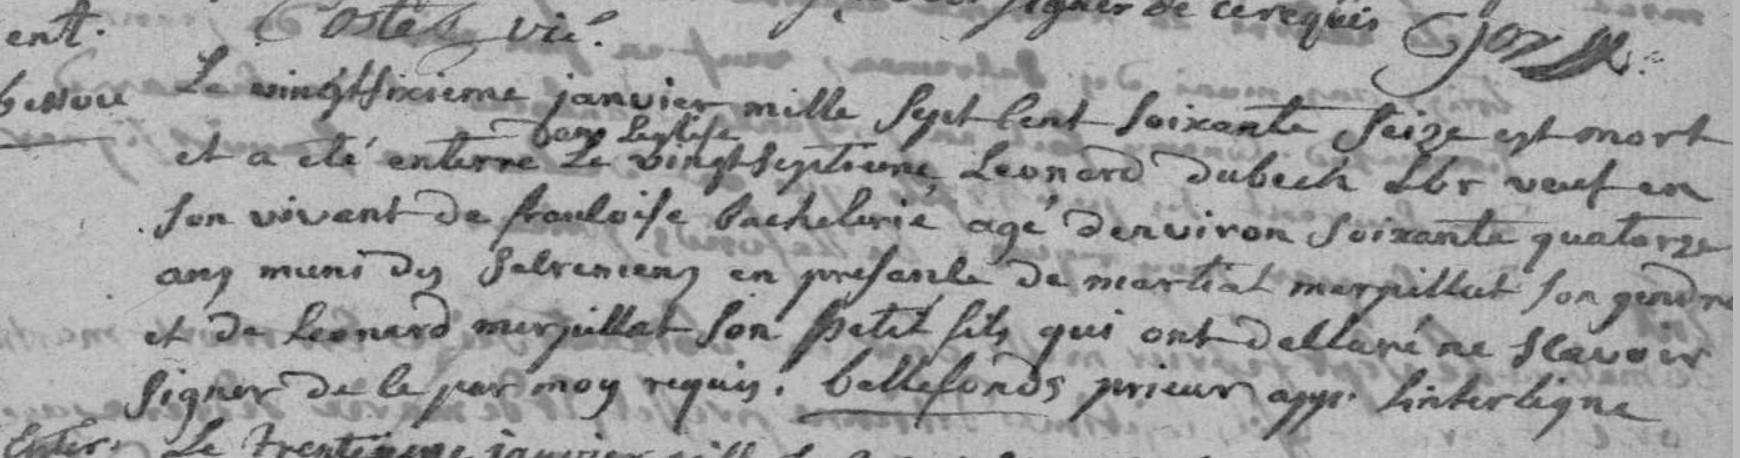 signer de ce requis
ent. Costes vic.
Le vingtsixieme janvier mille sept cent soixante seize est mort
dans leglise
et a eté enterré le vingtseptieme, Leonard dubech lbr veuf en
son vivant de francoise bachelerie agé denviron soixante quatorze
ans muni des sacremens en presance de martial merpillat son gendre
et de leonard merpillat son petit fils qui ont declaré ne scavoir
signer de ce par moy requis. bellefonds prieur app. linterligne
Enter. Le trentieme janvier